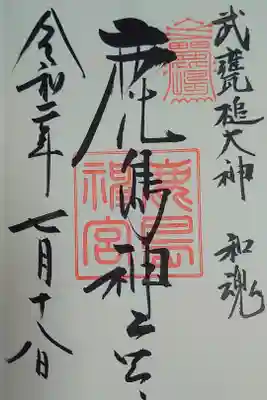 武甕槌大神 和魂
鹿島神宮
鹿島神宮
令和二年 七月十八日